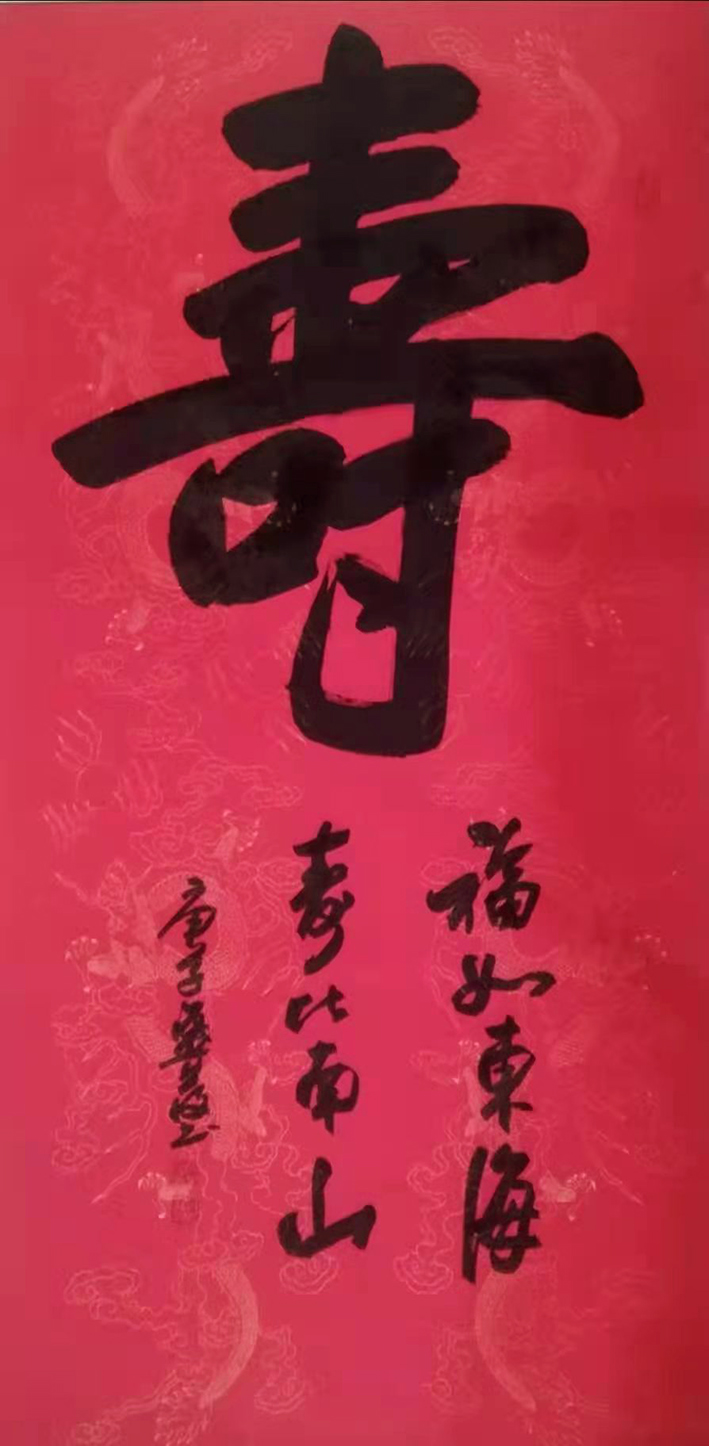 壽
福如東海
壽比南山
庚子